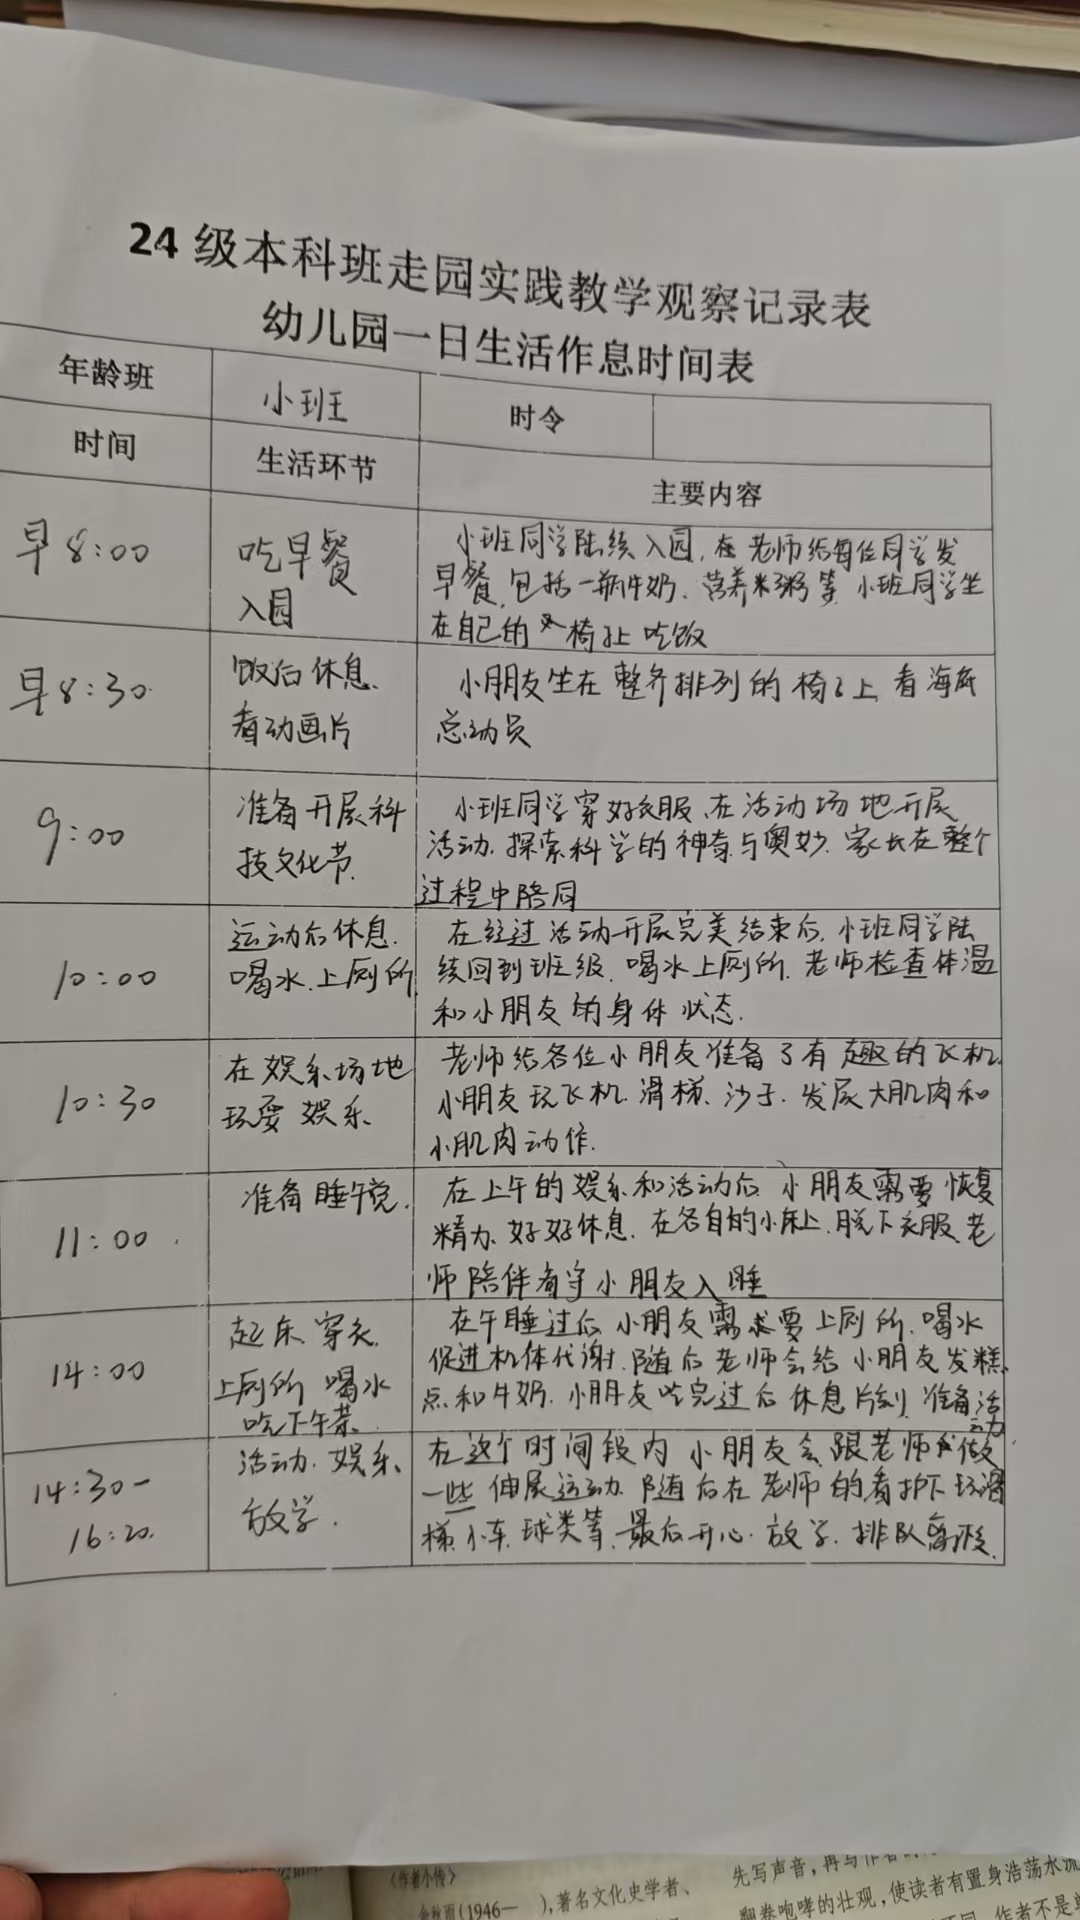 24级本科班走园实践教学观察记录表
幼儿园一日生活作息时间表
年龄班
小班
时令
时间
生活环节
主要内容
早8:00
吃早餐
入园
小班同学陆续入园,在老师给每位同学发
早餐,包括一瓶牛奶、营养米粥等,小班同学坐
在自己的椅子上吃饭
早8:30
饭后休息、
看动画片
小朋友坐在整齐排列的椅子上,看海底
总动员
9:00
准备开展科
技文化节.
小班同学穿好衣服,在活动场地开展
活动,探索科学的神奇与奥妙.家长在整个
过程中陪同
10:00
运动后休息.
喝水、上厕所
在经过活动开展完美结束后,小班同学陆
续回到班级,喝水上厕所,老师检查体温
和小朋友的身体状态.
10:30
在娱乐场地
玩耍娱乐、
老师给各位小朋友准备了有趣的飞机,
小朋友玩飞机、滑梯、沙子,发展大肌肉和
小肌肉动作.
11:00
准备睡午觉.
在上午的娱乐和活动后,小朋友需要恢复
精力,好好休息.在各自的小床上,脱下衣服,老
师陪伴看守小朋友入睡
14:00
起床、穿衣、
上厕所 喝水
吃下午茶.
在午睡过后,小朋友需求要上厕所、喝水
促进机体代谢,随后老师会给小朋友发糕
点和牛奶,小朋友吃完过后休息片刻,准备活
动
14:30-
16:20.
活动、娱乐、
放学.
在这个时间段内,小朋友会跟老师做
一些伸展运动,随后在老师的看护下玩滑
梯、小车、球类等,最后开心放学,排队离校.
《作者小传》
余秋雨(1946— ),著名文化史学者、
先写声音,再写
翻卷咆哮的壮观,使读者有置身浩荡水流
不同,作者不是